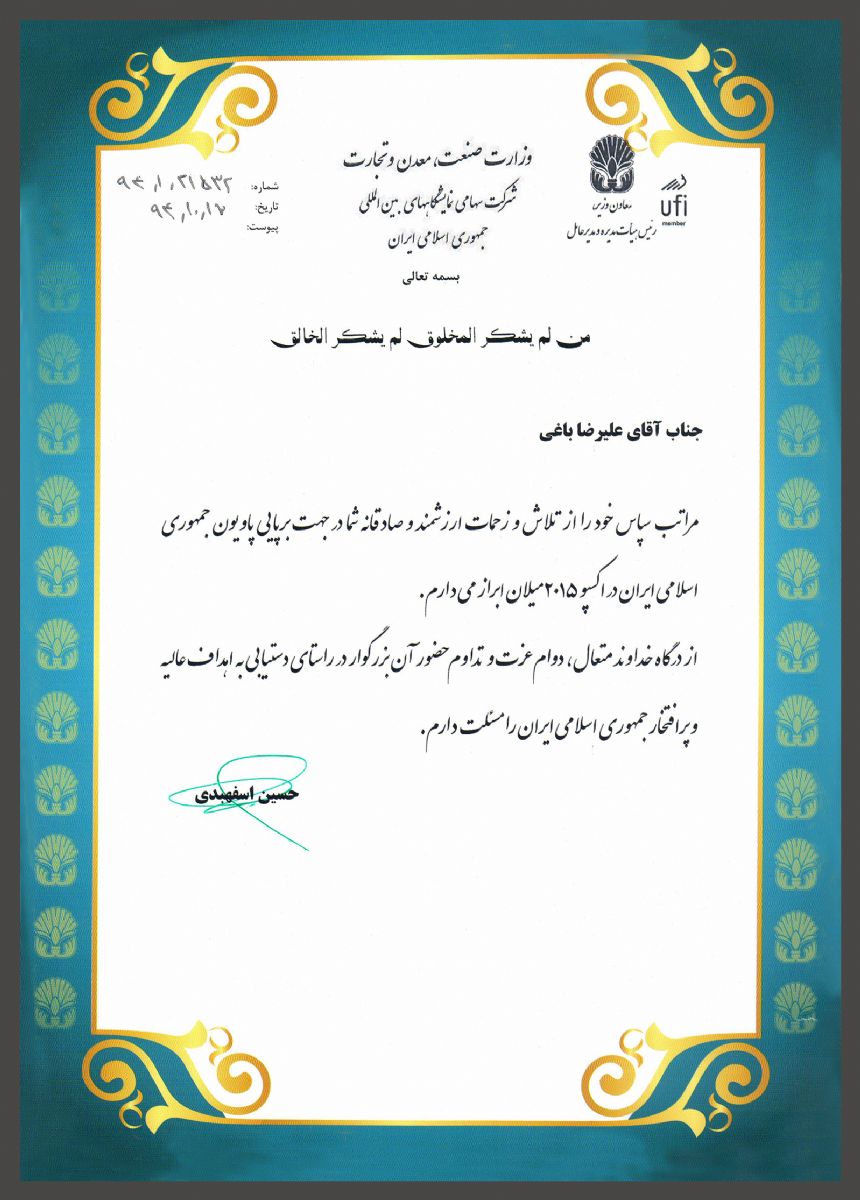 وزارت صنعت، معدن و تجارت
شرکت سهامی نمایشگاههای بین المللی
جمهوری اسلامی ایران
بسمه تعالی
ufi
member
معاون وزیر
رئیس هیأت مدیره و مدیرعامل
شماره: ۹۴/۱۰/۲۱۵۳۲
تاریخ: ۹۴/۱۰/۱۷
پیوست:
من لم یشکر المخلوق لم یشکر الخالق
جناب آقای علیرضا باغی
مراتب سپاس خود را از تلاش و زحمات ارزشمند و صادقانه شما در جهت برپایی پاویون جمهوری
اسلامی ایران در اکسپو ۲۰۱۵ میلان ابراز می دارم.
از درگاه خداوند متعال، دوام عزت و تداوم حضور آن بزرگوار در راستای دستیابی به اهداف عالیه
و پرافتخار جمهوری اسلامی ایران را مسئلت دارم.
حسین اسفهبدی